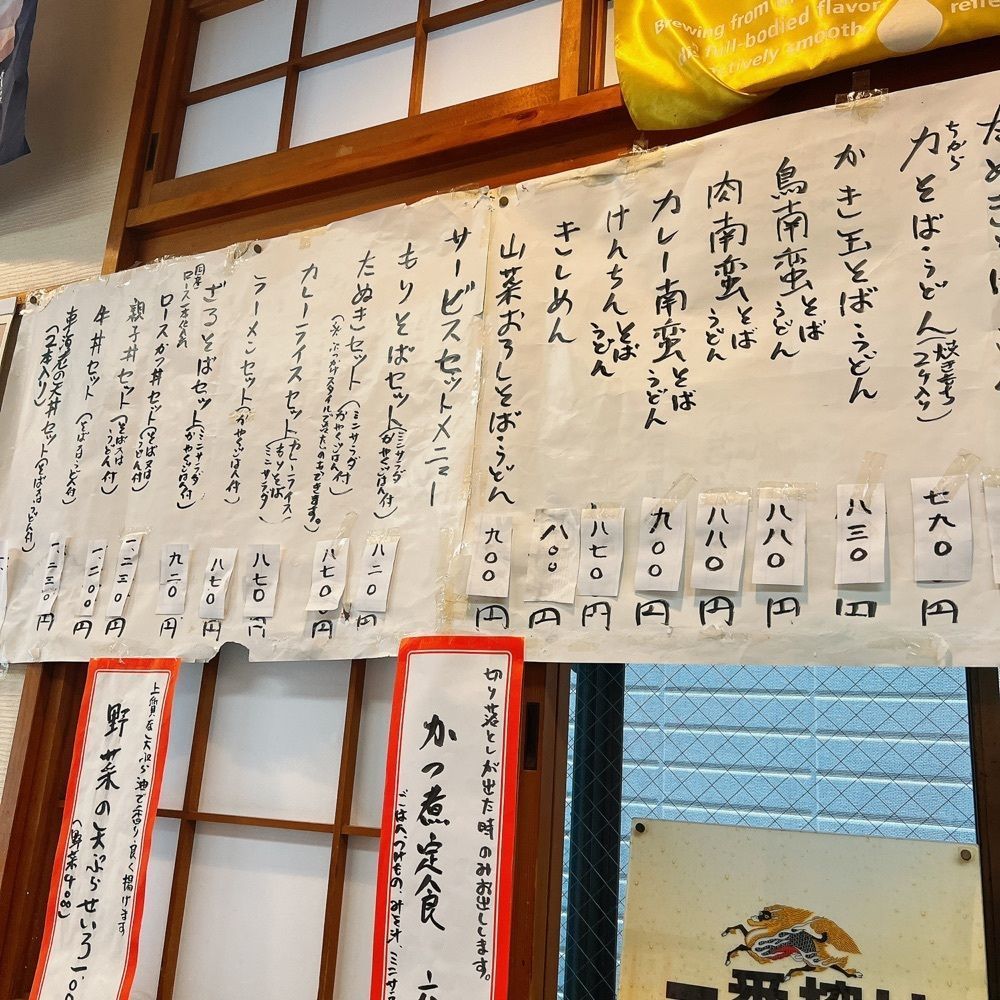 Brewing from
full-bodied flavor
smooth
力そば・うどん(焼きもち2ケ入り)
ちから
七九〇円
かき玉そば・うどん
八三〇円
鳥南蛮そばうどん
八八〇円
肉南蛮そばうどん
八八〇円
カレー南蛮そばうどん
九〇〇円
けんちんそばうどん
八七〇円
きしめん
八〇〇円
山菜おろしそば・うどん
九〇〇円
サービスセットメニュー
もりそばセット(ミニサラダかやくごはん付)
八二〇円
たぬきセット(ミニサラダかやくごはん付)
八七〇円
カレーライスセット(カレーライスもりそばミニサラダ)
八七〇円
ラーメンセット(かやくごはん付)
八七〇円
ざるそばセット(ミニサラダかやくごはん付)
九二〇円
国産ロース
ロースかつ丼セット(そば又はうどん付)
一、二三〇円
親子丼セット(そば又はうどん付)
一、二〇〇円
牛丼セット(そば又はうどん付)
一、二三〇円
車海老の天丼セット(そば又はうどん付)
(2本入り)
切り落としが出た時のみお出しします。
かつ煮定食
ごはん、つけもの、みそ汁、ミニサラ
上質な天ぷら油で香り良く揚げます
野菜の天ぷらせいろ
一番搾り